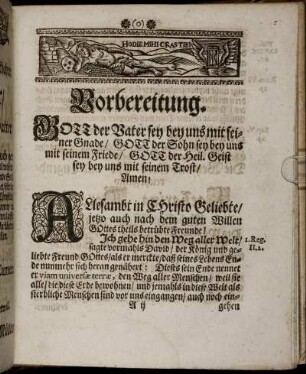 (o)
HODIE MIHI CRAS TIBI
Vorbereitung.
GOTT der Vater sey bey uns mit sei-
ner Gnade/ GOTT der Sohn sey bey uns
mit seinem Friede/ GOTT der Heil. Geist
sey bey uns mit seinem Trost/
Amen!
Allesambt in CHristo Geliebte/
jetzo auch nach dem guten Willen
GOttes theils betrübte Freunde!
Ich gehe hin den Weg aller Welt/
1. Reg.
sagte vormahls David/ der König und ge-
II. 2.
liebte Freund GOttes/ als er merckte/ daß seines Lebens En-
de nunmehr sich heran genähert: Dieses sein Ende nennet
er viam universæ terræ, den Weg aller Menschen/ weil sie
alle/ die diese Erde bewohnen/ und jemahls in diese Welt als
sterbliche Menschen sind vor uns eingangen/ auch noch ein-
A ij
gehen